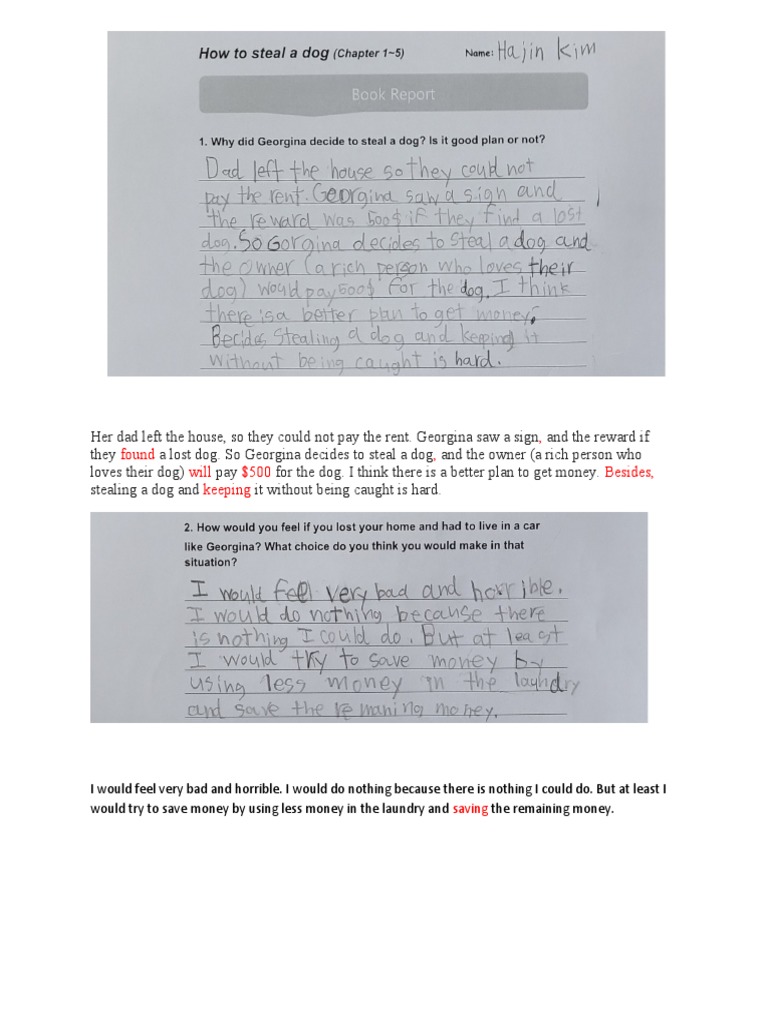 How to steal a dog (Chapter 1~5) Name: Hajin Kim
Book Report
1. Why did Georgina decide to steal a dog? Is it good plan or not?
Dad left the house so they could not
pay the rent. Georgina saw a sign and
the reward was 500$ if they find a lost
dog. So Gorgina decides to steal a dog and
the owner (a rich person who loves their
dog) would pay 500$ for the dog. I think
there is a better plan to get money.
Becides, stealing a dog and keeping it
without being caught is hard.
Her dad left the house, so they could not pay the rent. Georgina saw a sign, and the reward if
they found a lost dog. So Georgina decides to steal a dog, and the owner (a rich person who
loves their dog) will pay $500 for the dog. I think there is a better plan to get money. Besides,
stealing a dog and keeping it without being caught is hard.
2. How would you feel if you lost your home and had to live in a car
like Georgina? What choice do you think you would make in that
situation?
I would feel very bad and horrible.
I would do nothing because there
is nothing I could do. But at least
I would try to save money by
using less money in the laundry
and save the remaning money.
I would feel very bad and horrible. I would do nothing because there is nothing I could do. But at least I
would try to save money by using less money in the laundry and saving the remaining money.